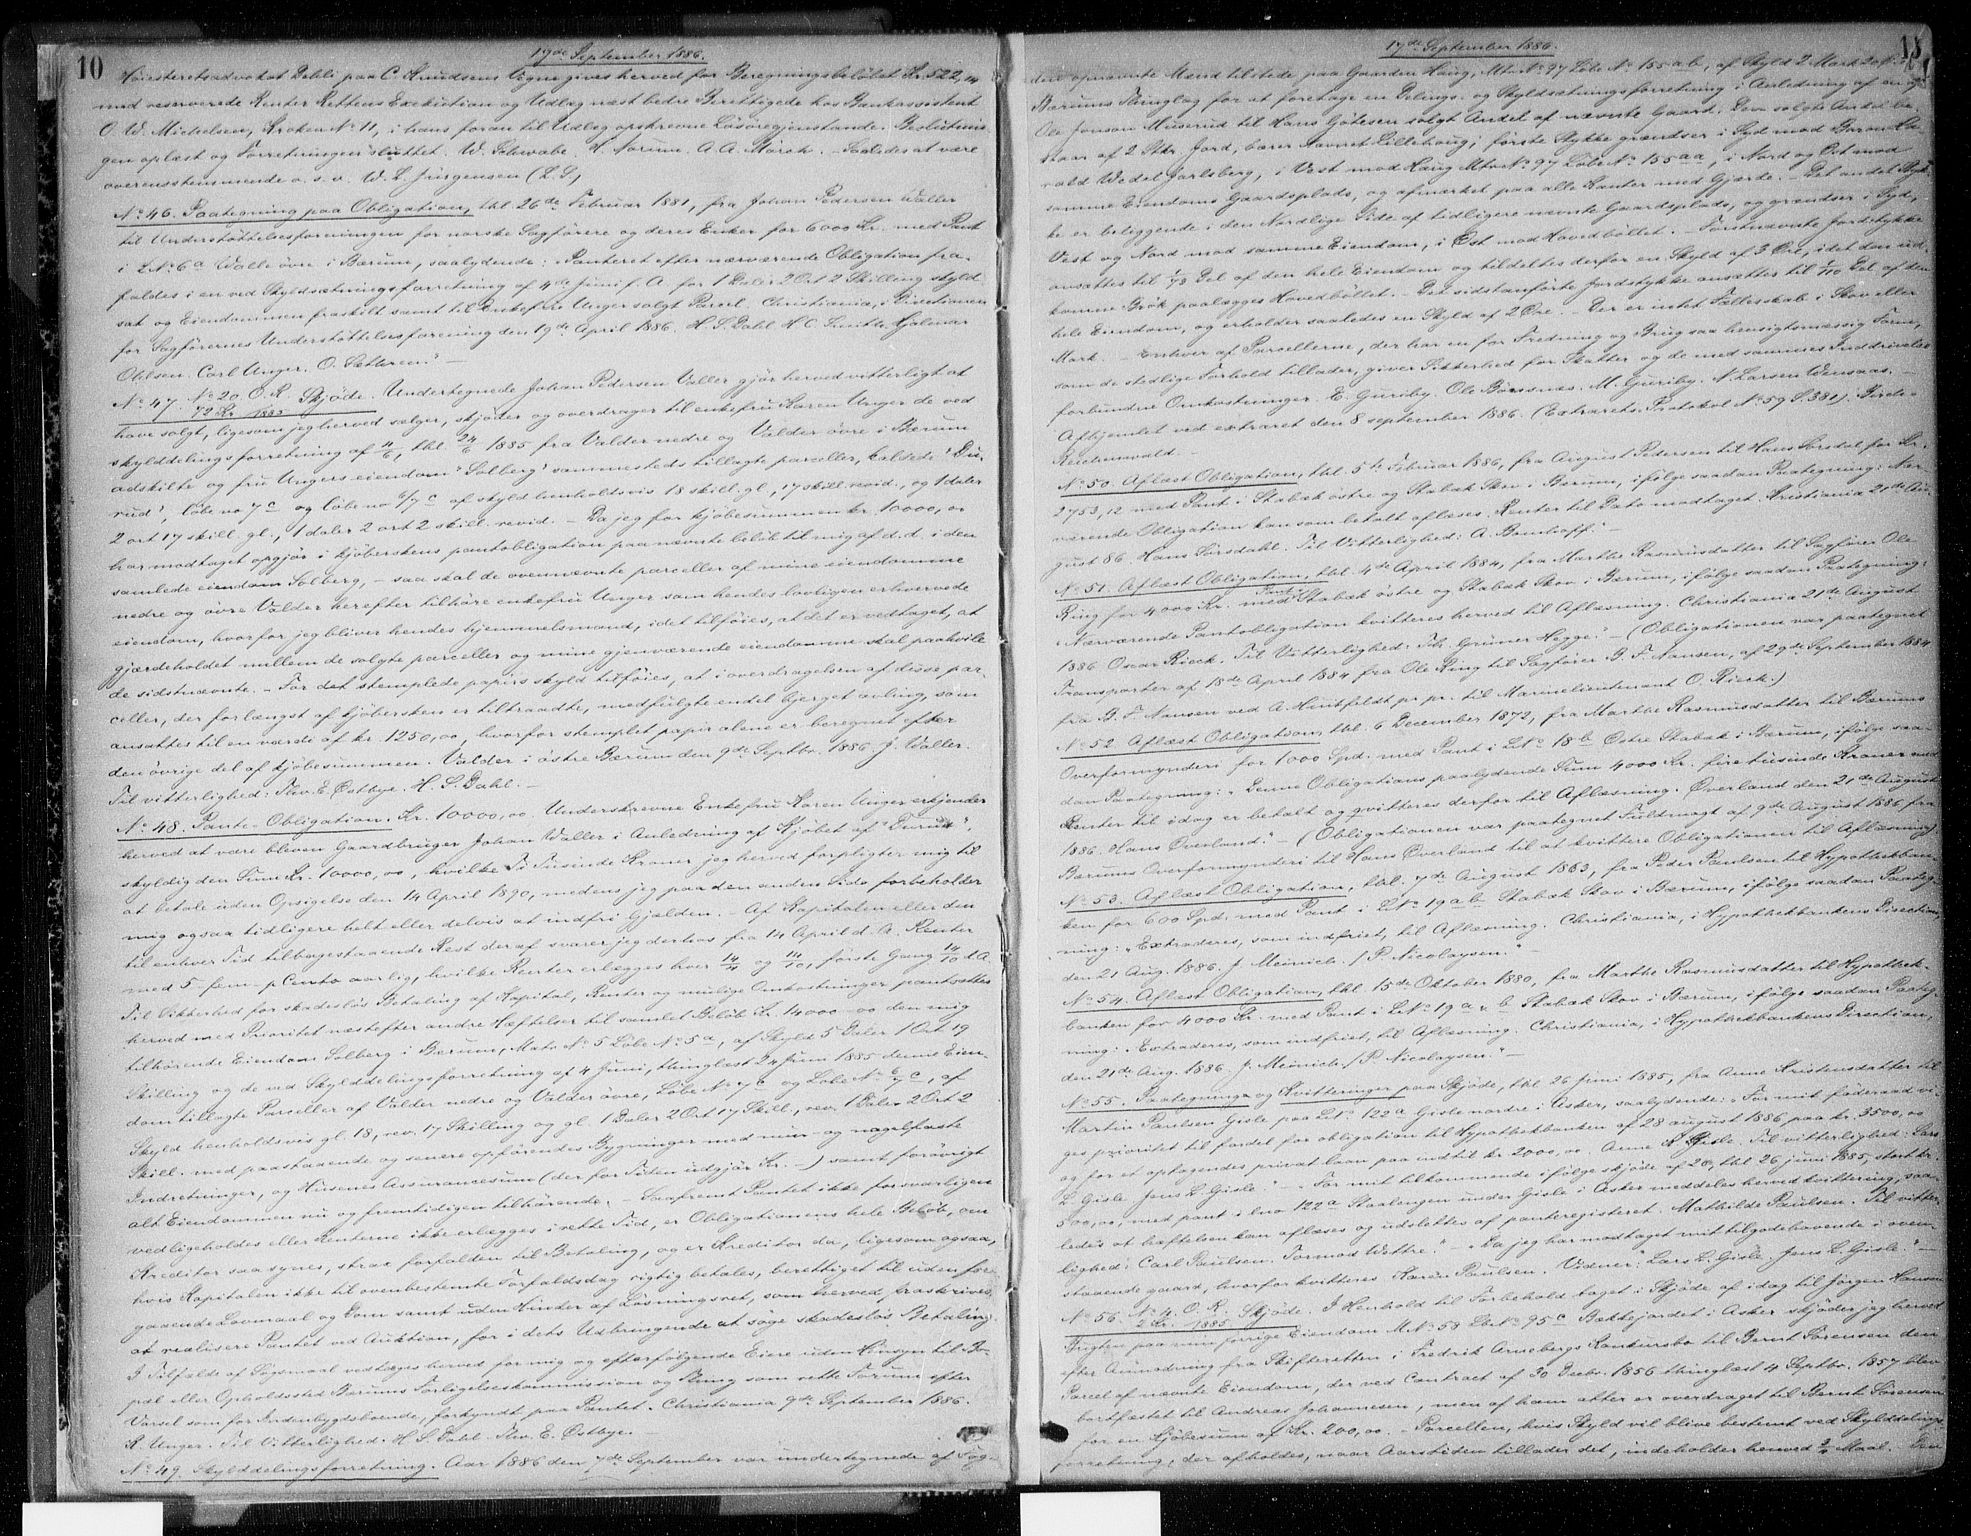 10
17de September 1886.
Høiesteretsadvokat Debli paa C. Knudsens Vegne gives herved for Beregningsbeløbet Kr. 522,
med reserverede Renter Rettens Exekution og Udlæg næst bedre Berettigede hos Bankassistent
O. W. Michelsen, Kroken No 11, i hans foran til Udlæg opskrevne Løsøregjenstande. Beslutnin-
gen oplæst og Forretningen sluttet. W. Schwabe. H. Norum. A. A. Mørch. – Saaledes at være
overensstemmende o. s. v. W. L. Jürgensen (L.S.)
No 46. Paategning paa Obligation, tbl. 26de Februar 1881, fra Johan Pedersen Waller
til Understøttelsesforeningen for norske Sagførere og deres Enker for 6000 Kr. med Pant
i LNo 6a Valle øvre i Bærum, saalydende: "Panteret efter nærværende Obligation fra-
faldes i en ved Skyldsætningsforretning af 4de Juni f. A. for 1 Daler 2 Ort 2 Skilling skyld
sat og Eiendommen fraskilt samt til Enkefru Unger solgt Parcel. Christiania, i Direktionen
for Sagførernes Understøttelsesforening den 19de April 1886. H. S. Dahl. H. C. Smith. Hjalmar
Ohlsen. Carl Unger. O. Sættren." –
No 47. No 20 O. R. 72 Kr. 1883 Skjøde. Undertegnede Johan Pedersen Valler gjør herved vitterligt at
have solgt, ligesom jeg herved sælger, skjøder og overdrager til enkefru Karen Unger de ved
skylddelingsforretning af 4/6, tbl. 24/6 1885 fra Valder nedre og Valder øvre i Bærum
adskilte og fru Ungers eiendom "Solberg" sammesteds tillagte parceller, kaldede "Du-
rud", løbe no 7c og løbe no 6/7c af skyld henholdsvis 18 skill. gl., 17 skill. revid., og 1 daler
2 ort 17 skill. gl., 1 daler 2 ort 2 skill. revid. – Da jeg for kjøbesummen kr. 10000,00
har modtaget opgjør i kjøberskens pantobligation paa nævnte beløb til mig af d. d. i den
samlede eiendom Solberg, – saa skal de ovennævnte parceller af mine eiendomme
nedre og øvre Valder herefter tilhøre enkefru Unger som hendes lovligen erhvervede
eiendom, hvorfor jeg bliver hendes hjemmelsmand, idet tilføies, at det er vedtaget, at
gjærdeholdet mellem de solgte parceller og mine gjenværende eiendomme skal paahvile
de sidstnævnte. – For det stemplede papirs skyld tilføies, at i overdragelsen af disse par-
celler, der forlængst af kjøbersken er tiltraadte, medfulgte endel bjerget avling, som
ansættes til en værdi af kr. 1250,00, hvorfor stemplet papir alene er beregnet efter
den øvrige del af kjøbesummen. Valder i østre Bærum den 9de Septbr. 1886. J. Valler.
Til vitterlighed: Thv. E. Østbye. H. S. Dahl. –
No 48. Pante-Obligation. Kr. 10000,00. Underskrevne Enkefru Karen Unger erkjender
herved at være bleven Gaardbruger Johan Waller i Anledning af Kjøbet af "Durud",
skyldig den Sum Kr. 10000,00, hvilke Ti Tusinde Kroner jeg herved forpligter mig til
at betale uden Opsigelse den 14 April 1890, medens jeg paa den anden Side forbeholder
mig ogsaa tidligere helt eller delvis at indfri Gjælden. – Af Kapitalen eller den
til enhver Tid tilbagestaaende Rest deraf svarer jeg derhos fra 14 April d. A. Renter
med 5 – fem – p Cento aarlig, hvilke Renter erlægges hver 14/4 og 14/10, første Gang 14/10 d. A.
Til Sikkerhed for skadesløs Betaling af Kapital, Renter og mulige Omkostninger pantsættes
herved med Prioritet næstefter andre Hæftelser til samlet Beløb Kr. 14000–00 den mig
tilhørende Eiendom Solberg i Bærum, Matr. No 5 Løbe No 5a, af Skyld 5 Daler 1 Ort 19
Skilling og de ved Skylddelingsforretning af 4 Juni, thinglæst 24 Juni 1885 denne Eien-
dom tillagte Parceller af Valder nedre og Valder øvre, Løbe No 7c og Løbe No 6/7c, af
Skyld henholdsvis gl. 18, rev. 17 Skilling og gl. 1 Daler 2 Ort 17 Skill., rev. 1 Daler 2 Ort 2
Skill. med paastaaende og senere opførendes Bygninger med mur- og nagelfaste
Indretninger, og Husenes Assurancesum (der for Tiden udgjør Kr. –) samt forøvrigt
alt Eiendommen nu og fremtidigen tilhørende. – Saafremt Pantet ikke forsvarligen
vedligeholdes eller Renterne ikke erlægges i rette Tid, er Obligationens hele Beløb, om
Kreditor saa synes, strax forfalden til Betaling, og er Kreditor da, ligesom ogsaa,
hvis Kapitalen ikke til ovenbestemte Forfaldsdag rigtig betales, berettiget til uden fore
gaaende Lovmaal og Dom samt uden Hinder af Løsningsret, som herved fraskrives,
at realisere Pantet ved Auktion, for i dets Udbringende at søge skadesløs Betaling.
I Tilfælde af Søgsmaal vedtages herved for mig og efterfølgende Eiere uden Hensyn til Bo-
pæl eller Opholdssted Bærums Forligelseskommission og Thing som rette Forum efter
Varsel som for Indenbygdsboende, forkyndt paa Pantet. Christiania 9de September 1886.
K. Unger. Til Vitterlighed: H. S. Dahl. Thv. E. Østbye. –
No 49. Skylddelingsforretning. Aar 1886 den 7de September var undertegnede af Fog-
17de September 1886.
den opnævnte Mænd tilstede paa Gaarden Haug, Mtr. No 97 Løbe No 155 a b, af Skyld 2 Mark 20 Øre i
Bærums Thinglag for at foretage en Delings- og Skyldsætningsforretning i Anledning af en af
Ole Jonson Muserud til Hans Gotesen solgt Andel af nævnte Gaard. Den solgte Andel be-
staar af 2 Stkr. Jord, bærer Navnet Lillehaug; første Stykke grændser i Syd mod Baron Ha-
rald Wedel Jarlsberg, i Vest mod Haug Mtr. No 97 Løbe No 155 aa, i Nord og Øst mod
samme Eiendoms Gaardsplads, og afmærket paa alle Kanter med Gjærde. – Det andet Styk-
ke er beliggende i den Nordlige Side af tidligere nævnte Gaardsplads, og grændser i Syd,
Vest og Nord mod samme Eiendom, i Øst mod Hovedbøllet. – Førstnævnte Jordstykke
ansættes til 1/73 Del af den hele Eiendom og tildeltes derfor en Skyld af 3 Øre, idet den ud-
komne Brøk paalægges Hovedbøllet. – Det sidstanførte Jordstykke ansættes til 1/110 Del af den
hele Eiendom, og erholder saaledes en Skyld af 2 Øre. – Der er intet Fællesskab i Skov eller
Mark. – Enhver af Parcellerne, der har en for Fredning og Brug saa hensigtsmæssig Form,
som de stedlige Forhold tillader, giver Sikkerhed for Skatter og de med sammes Inddrivelse
forbundne Omkostninger. E. Guriby. Ole Børsnæs. M. Guriby. N. Larsen Wensaas. –
Afhjemlet ved extraret den 8 september 1886. (Extrarets Protokol No 59 S. 381). Birch-
Reichenwald. –
No 50. Aflæst Obligation, tbl. 5te Februar 1886, fra August Pedersen til Hans Sørsdal for Kr.
2753,12 med Pant i Stabæk østre og Stabæk Skov i Bærum, ifølge saadan Paategning: "Nær-
værende Obligation kan som betalt aflæses. Renter til Dato modtaget. Kristiania 21de Au-
gust 86. Hans Sørsdahl. Til Vitterlighed: A. Bomhoff." –
No 51. Aflæst Obligation, tbl. 4de April 1884, fra Marthe Rasmusdatter til Sagfører Ole
Ring for 4000 Kr. med Pant i Stabæk østre og Stabæk Skov i Bærum, ifølge saadan Paategning:
"Nærværende Pantobligation kvitteres herved til Aflæsning. Christiania 21de August
1886. Oscar Rieck. Til Vitterlighed: Th. Grüner Hegge." – (Obligationen var paategnet
Transporter af 18de April 1884 fra Ole Ring til Sagfører B. F. Nansen, af 29de September 1884
fra B. F. Nansen ved A. Huitfeldt pr. pr. til Marinelieutenant O. Rieck.)
No 52. Aflæst Obligation, tbl. 6 December 1872, fra Marthe Rasmusdatter til Bærums
Overformynderi for 1000 Spd. med Pant i LNo 18b Østre Stabæk i Bærum, ifølge saa-
dan Paategning: "Denne Obligations paalydende Sum 4000 Kr. firetusinde Kroner med
Renter til idag er betalt og qvitteres derfor til Aflæsning. Øverland den 21de August
1886. Hans Øverland." – (Obligationen var paategnet Fuldmagt af 9de August 1886 fra
Bærums Overformynderi til Hans Øverland til at kvittere Obligationen til Aflæsning).
No 53. Aflæst Obligation, tbl. 7de August 1863, fra Peder Paulsen til Hypothekban-
ken for 600 Spd. med Pant i LNo 19 a b Stabæk Skov i Bærum, ifølge saadan Paateg-
ning: "Extraderes, som indfriet, til Aflæsning. Christiania, i Hypothekbankens Direction,
den 21 Aug. 1886. J. Meinich. / P. Nicolaysen." –
No 54. Aflæst Obligation, tbl. 15de Oktober 1880, fra Marthe Rasmusdatter til Hypothek-
banken for 4000 Kr. med Pant i LNo 19 a & b Stabæk Skov i Bærum, ifølge saadan Paateg-
ning: "Extraderes, som indfriet, til Aflæsning. Christiania, i Hypothekbankens Direction,
den 21de Aug. 1886. J. Meinich. / P. Nicolaysen." –
No 55. Paategning og Kvitteringer paa Skjøde, tbl. 26 juni 1885, fra Anne Kristensdatter til
Martin Paulsen Gisle paa LNo 122a Gisle nordre i Asker, saalydende: "For mit føderaad vi-
ges prioritet til fordel for obligation til Hypothekbanken af 28 august 1886 paa kr. 3500,00
og for et optagendes privat laan paa indtil kr. 2000,00. Anne K. Gisle. Til vitterlighed: Lars
L. Gisle. Jens L. Gisle." – "For mit tilkommende ifølge skjøde af 20, tbl. 26 juni 1885, stort kr.
500,00, med pant i lno 122a Staalengen under Gisle i Asker meddeles herved kvittering, saa-
ledes at hæftelsen kan aflæses og udslettes af panteregisteret. Mathilde Paulsen. Til vitter-
lighed: Carl Paulsen. Tormod Wettre." – "Da jeg har modtaget mit tilgodehavende i oven-
staaende gaard, hvorfor kvitteres. Karen Paulsen. Vidner: Lars L. Gisle. Jens L. Gisle." –
No 56. No 4. O. R. 2 Kr. 1885. Skjøde. I Henhold til Forbehold taget i Skjøde af idag til Jørgen Hansen
Vugten paa min forrige Eiendom M. No 58 Lb. No 95c Bækkejordet i Asker skjøder jeg herved
efter Anmodning fra Skifteretten i Fredrik Annebergs Konkursbo til Bernt Sørensen den
Parcel af nævnte Eiendom, der ved Contract af 30 Decbr. 1856 thinglæst 4 Septbr. 1857 blev
bortfæstet til Andreas Johannesen, men af ham atter er overdraget til Bernt Sørensen
for en Kjøbesum af Kr. 200,00. – Parcellen, hvis Skyld vil blive bestemt ved Skylddelings-
forretning, der afholdes, naar Aarstiden tillader det, indeholder henved 3/4 Maal. –